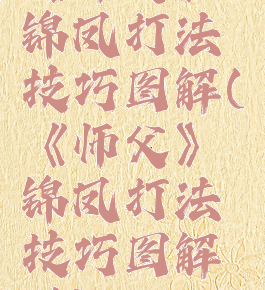 锦凤打法
技巧图解(
《师父》
锦凤打法
技巧图解